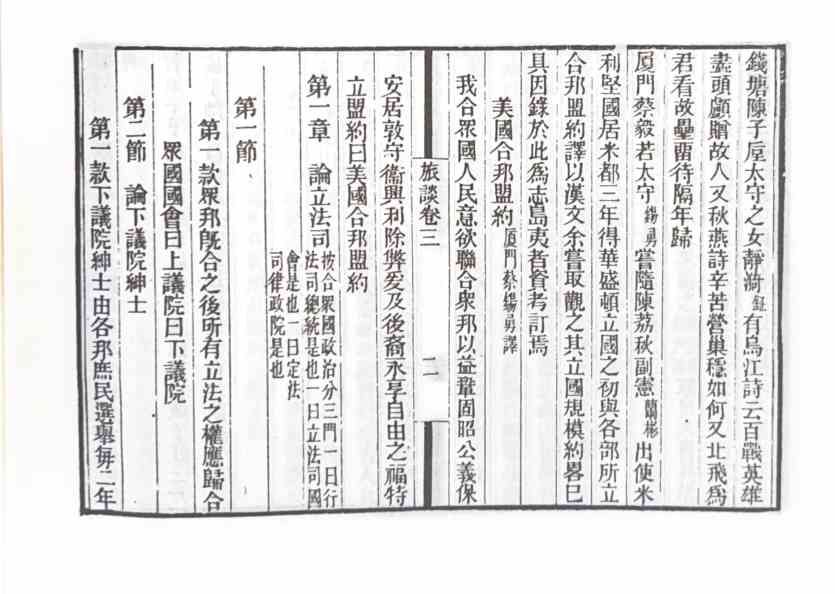 錢塘陳子垕太守之女靜漪鉦有烏江詩云百戰英雄
盡頭顱贈故人又秋燕詩辛苦營巢穩如何又北飛爲
君看故壘畱待隔年歸
厦門蔡毅若太守錫勇嘗隨陳荔秋副憲蘭彬出使米
利堅國居米都三年得華盛頓立國之初與各部所立
合邦盟約譯以漢文余嘗取觀之其立國規模約畧已
具因錄於此爲志島夷者資考訂焉
美國合邦盟約厦門蔡錫勇譯
我合眾國人民意欲聯合眾邦以益鞏固昭公義保
旅談卷三
二
安居敦守衞興利除弊爰及後裔永享自由之福特
立盟約曰美國合邦盟約
第一章 論立法司按合眾國政治分三門一曰行
法司總統是也一曰立法司國
會是也一曰定法
司律政院是也
第一節
第一款眾邦旣合之後所有立法之權應歸合
眾國國會曰上議院曰下議院
第二節 論下議院紳士
第一款下議院紳士由各邦庶民選舉每二年